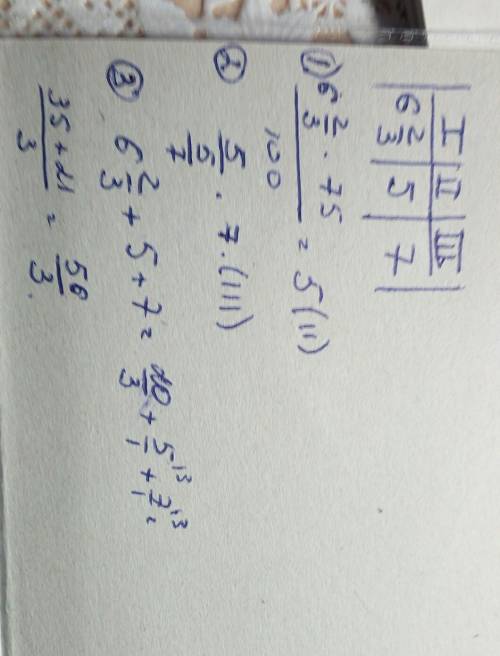 I | II | III
6 2/3 | 5 | 7
① (6 2/3 · 75)/100 = 5 (II)
② 5/(5/7) · 7 · (III)
③ 6 2/3 + 5 + 7 = 20/3 + 5/1 ¹³ + 7/1 ¹³ =
(35 + 21)/3 = 56/3.